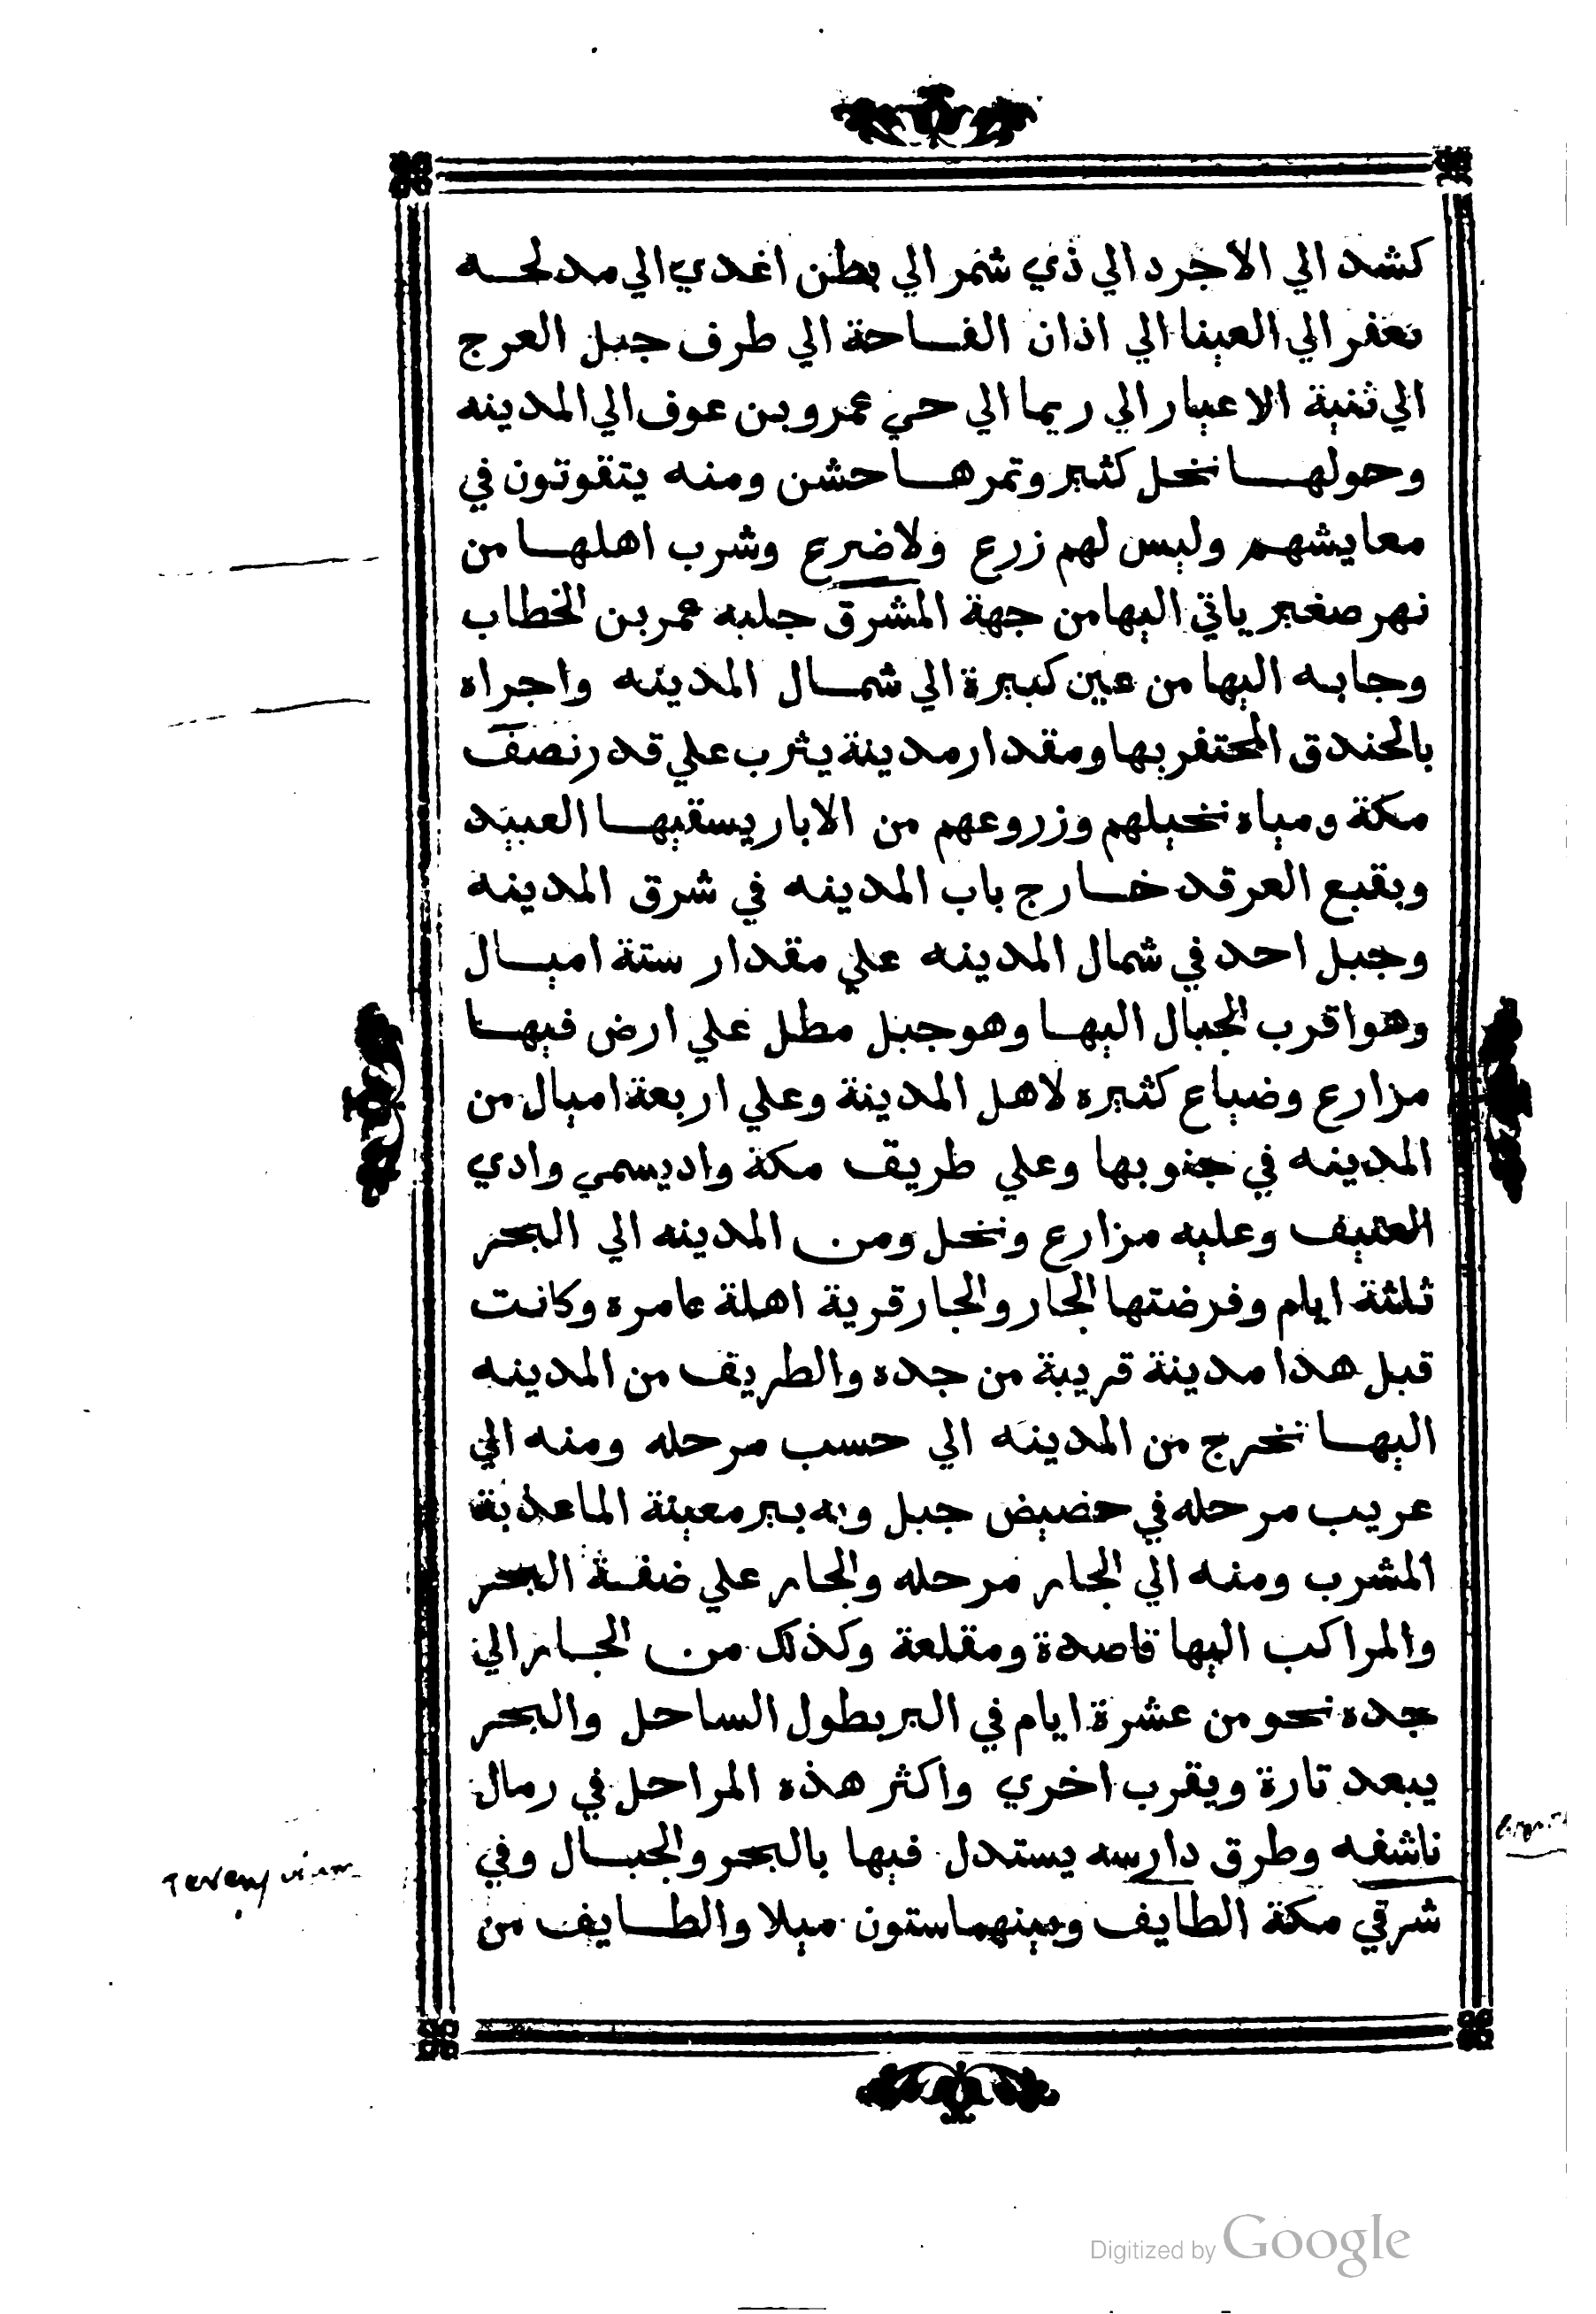 كشد الي الاجرد الي ذي شمر الي بطن اغدي الي مدلحه
تعفر الي العينا الي اذان الفساحة الي طرف جبل العرج
الي ثنية الاعيار الي ريما الي حي عمرو بن عوف الي المدينه
وحولها نخل كثير وتمرها حشن ومنه يتقوتون في
معايشهم وليس لهم زرع ولا ضرع وشرب اهلها من
نهر صغير ياتي اليها من جهة المشرق جلبه عمر بن الخطاب
وجابه اليها من عين كبيرة الي شمال المدينه واجراه
بالخندق المحتفر بها ومقدار مدينة يثرب علي قدر نصف
مكة ومياه نخيلهم وزروعهم من الابار يسقيها العبيد
وبقيع العرقد خارج باب المدينه في شرق المدينه
وجبل احد في شمال المدينه علي مقدار ستة اميال
وهو اقرب الجبال اليها وهو جبل مطل علي ارض فيها
مزارع وضياع كثيره لاهل المدينة وعلي اربعة اميال من
المدينه في جنوبها وعلي طريف مكة واد يسمي وادي
العتيف وعليه مزارع ونخل ومن المدينه الي البحر
ثلثة ايام وفرضتها الجار والجار قرية اهلة عامره وكانت
قبل هدا مدينة قريبة من جده والطريف من المدينه
اليها تخرج من المدينه الي حسب مرحله ومنه الي
عريب مرحله في حضيض جبل وبه بير معينة الما عذبة
المشرب ومنه الي الجار مرحله والجار علي ضفة البحر
والمراكب اليها قاصدة ومقلعة وكذلك من الجار الي
جده نحو من عشرة ايام في البر بطول الساحل والبحر
يبعد تارة ويقرب اخري واكثر هذه المراحل في رمال
ناشفه وطرق دارسه يستدل فيها بالبحر والجبال وفي
شرقي مكة الطايف وبينهما ستون ميلا والطايف من
Digitized by Google